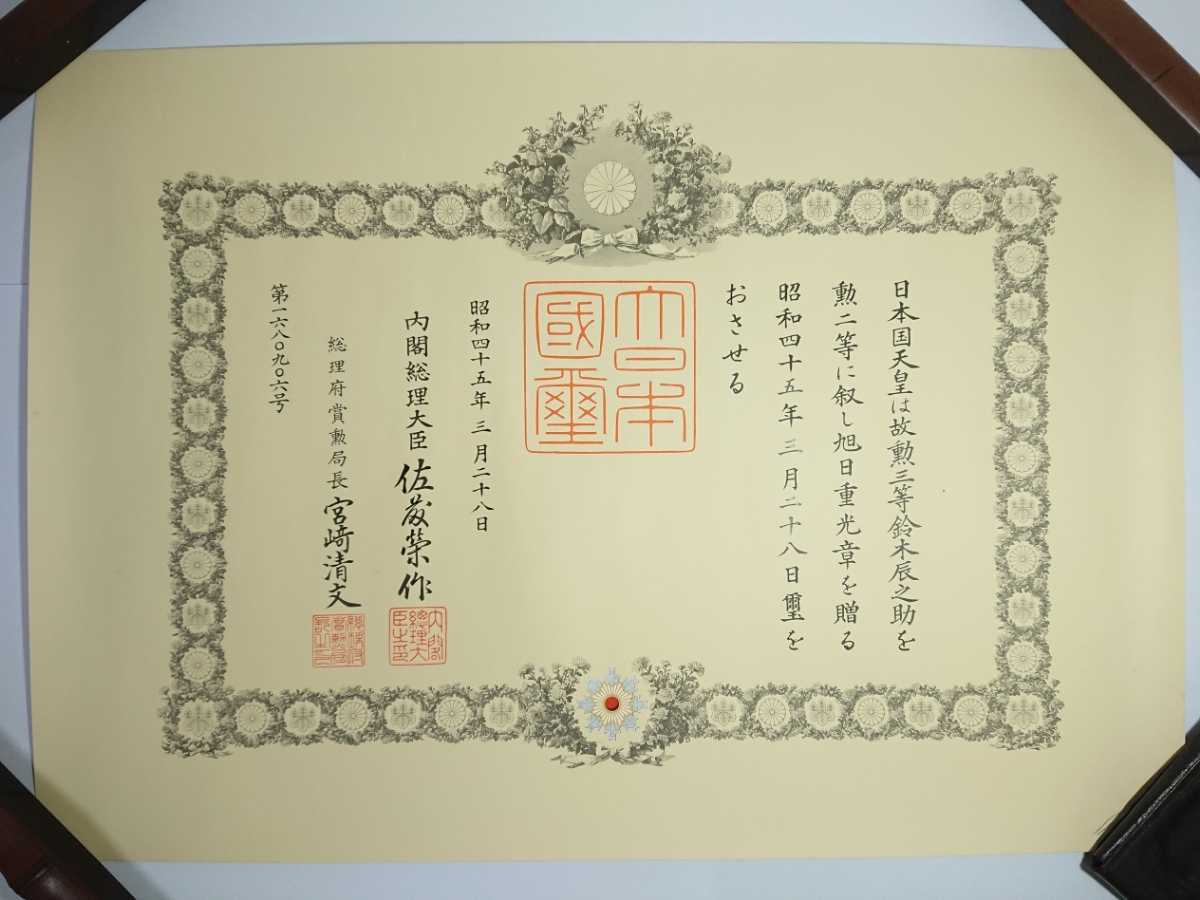 日本国天皇は故勲三等鈴木辰之助を
勲二等に叙し旭日重光章を贈る
昭和四十五年三月二十八日璽を
おさせる
大日本
國璽
昭和四十五年三月二十八日
内閣総理大臣佐藤榮作
内閣
総理大
臣之印
総理府賞勲局長宮﨑清文
第一六八〇九〇六号